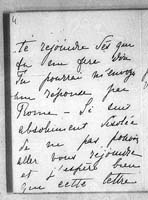 4
te rejoindre dès que
tu me feras
Tu pourras m'envoyer
une réponse par
Rome – Si suis
absolument désolée
de ne pas pouvoir
aller vous rejoindre
et j'espère bien
que cette lettre